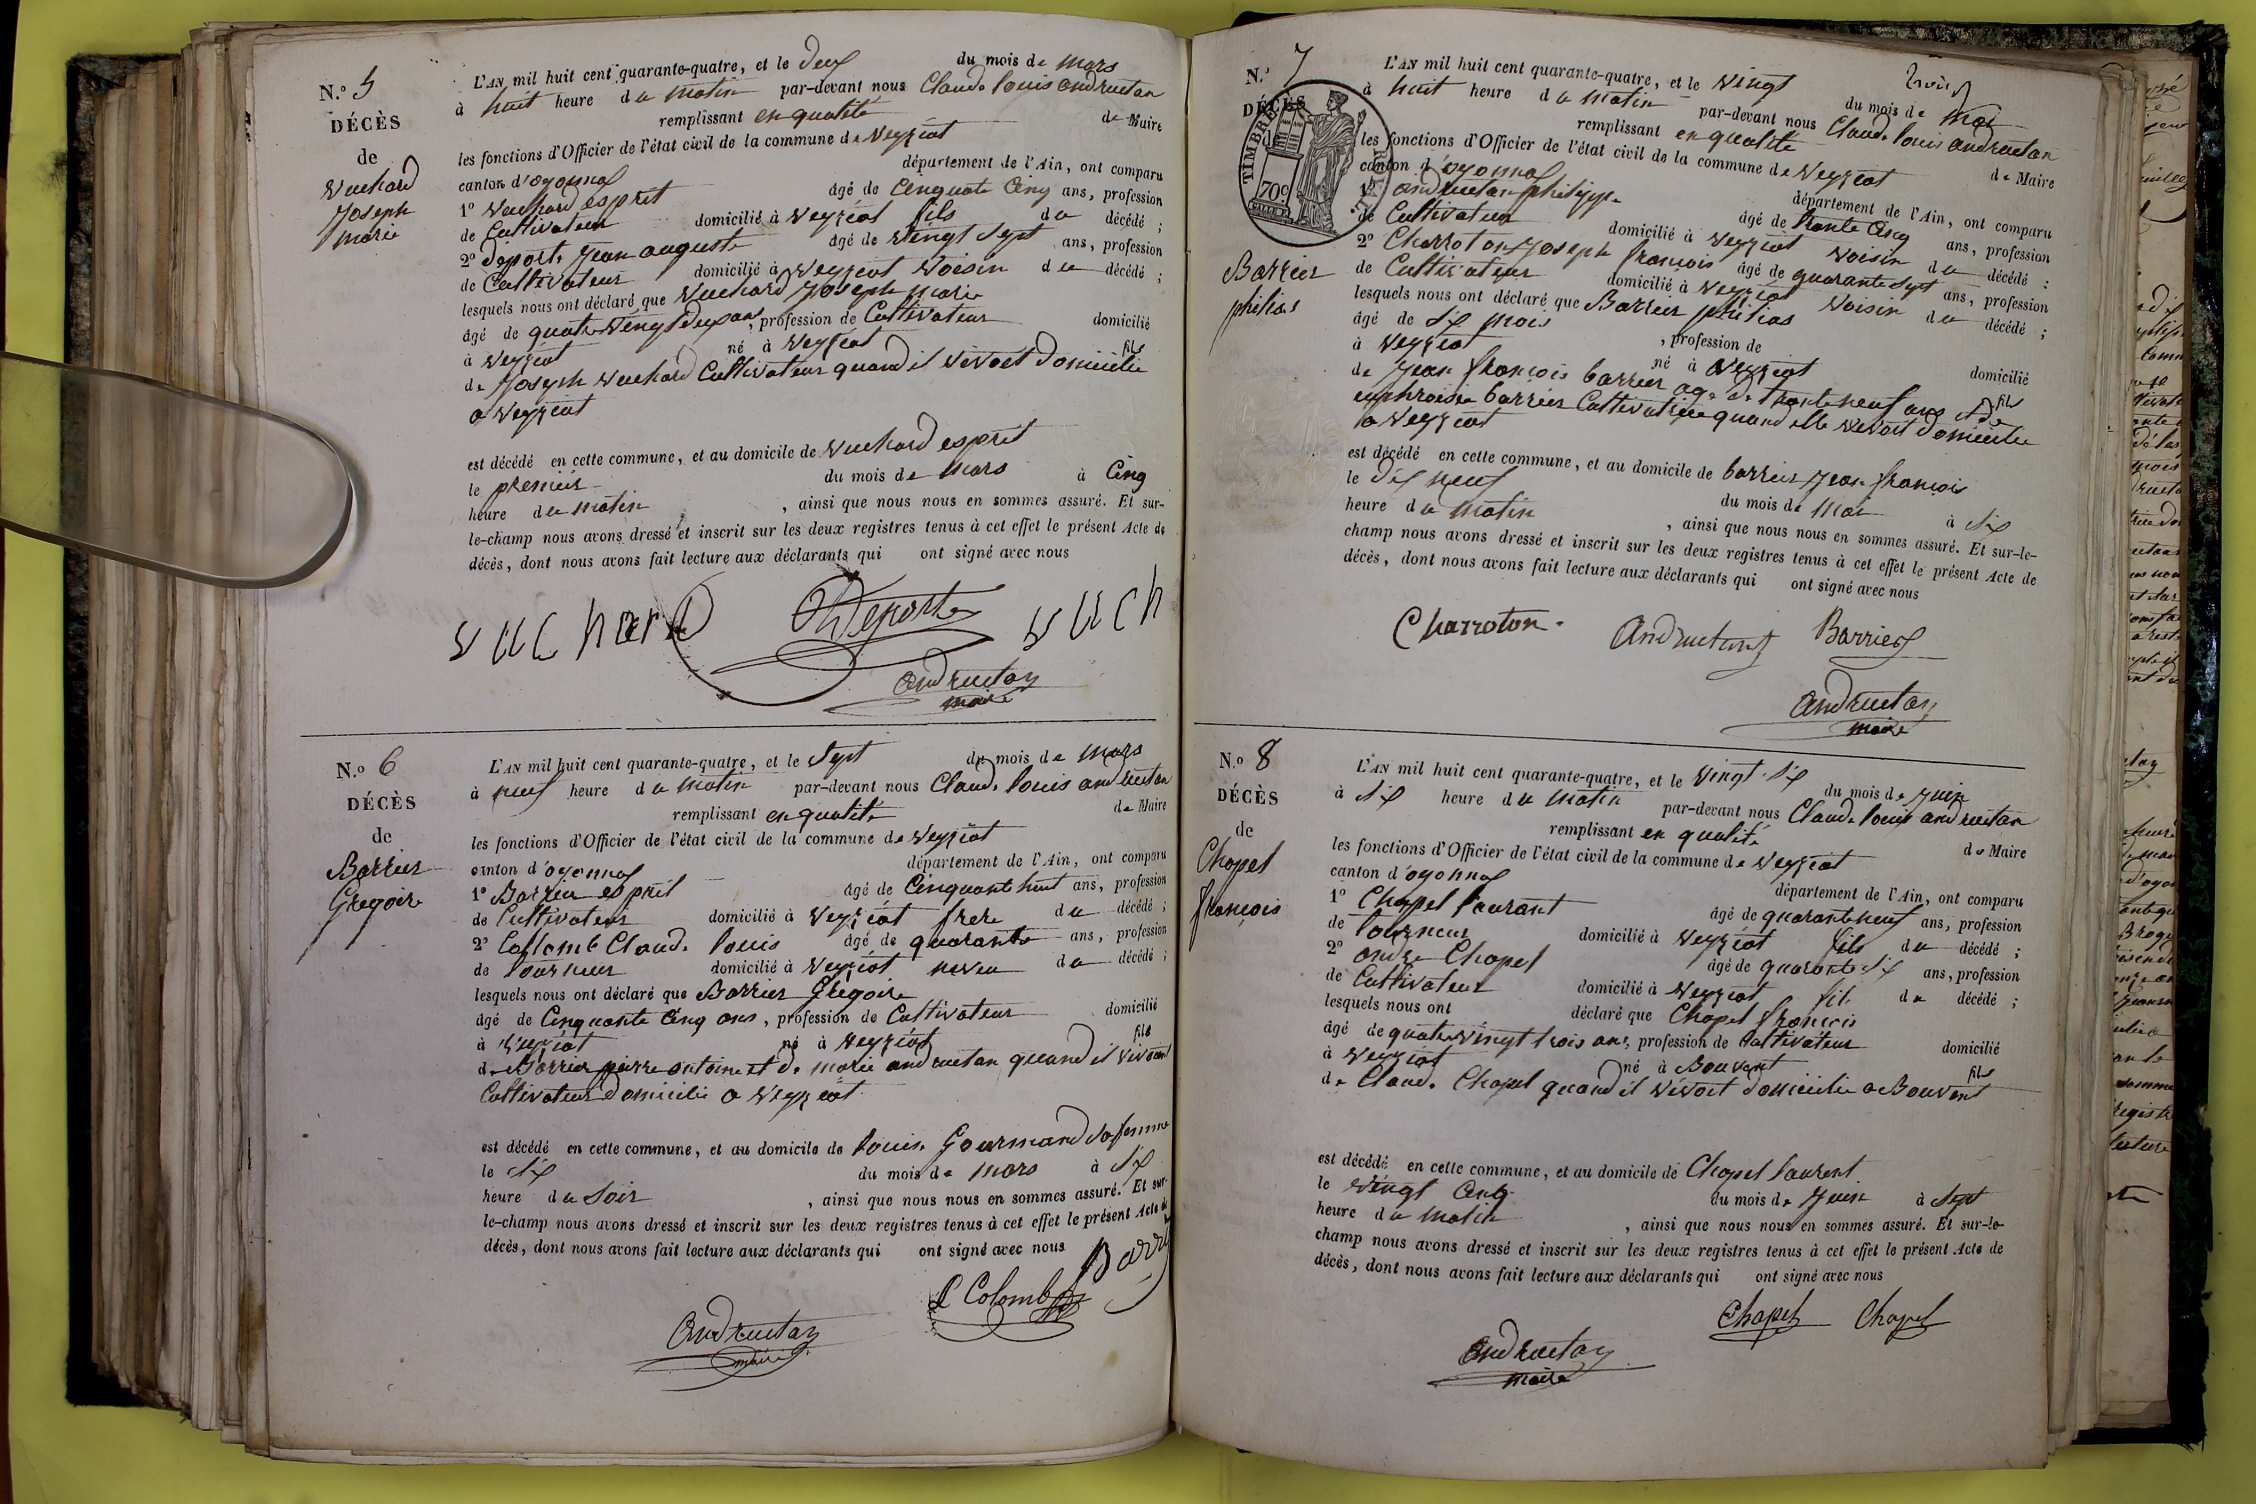 N.º 5
DÉCÈS
de
Vuchard
Joseph
marie
L'AN mil huit cent quarante-quatre, et le deux du mois de mars
à huit heure du matin par-devant nous Claude louis andruetan
remplissant en qualité de Maire
les fonctions d'Officier de l'état civil de la commune de Veyziat
canton d'oyonnax département de l'Ain, ont comparu
1º Vuchard esprit âgé de Cinquante Cinq ans, profession
de Cultivateur domicilié à Veyziat fils du décédé ;
2º déporte Jean auguste âgé de vingt sept ans, profession
de Cultivateur domicilié à Veyziat Voisin du décédé ;
lesquels nous ont déclaré que Vuchard Joseph marie
âgé de quatre Vingt deux ans, profession de Cultivateur domicilié
à Veyziat né à Veyziat fils
de Joseph Vuchard Cultivateur quand il vivoit domicilié
a Veyziat
est décédé en cette commune, et au domicile de Vuchard esprit
le premier du mois de mars à Cinq
heure du matin , ainsi que nous nous en sommes assuré. Et sur-
le-champ nous avons dressé et inscrit sur les deux registres tenus à cet effet le présent Acte de
décès, dont nous avons fait lecture aux déclarants qui ont signé avec nous
vuchard Deporte vuch
andruetan
maire
N.º 6
DÉCÈS
de
Barrier
Gregoire
L'AN mil huit cent quarante-quatre, et le Sept du mois de mars
à neuf heure du matin par-devant nous Claude louis andruetan
remplissant en qualité de Maire
les fonctions d'Officier de l'état civil de la commune de Veyziat
canton d'oyonnax département de l'Ain, ont comparu
1º Barrier esprit âgé de Cinquante huit ans, profession
de Cultivateur domicilié à Veyziat frere du décédé ;
2º Collomb Claude louis âgé de quarante ans, profession
de tourneur domicilié à Veyziat neveu du décédé ;
lesquels nous ont déclaré que Barrier Grégoire
âgé de Cinquante Cinq ans, profession de Cultivateur domicilié
à Veyziat né à Veyziat fils
de Barrier pierre antoine et de marie andruetan quand il vivoint
Cultivateur domicilié a Veyziat
est décédé en cette commune, et au domicile de louise Gourmand sa femme
le Six du mois de mars à Six
heure du Soir , ainsi que nous nous en sommes assuré. Et sur-
le-champ nous avons dressé et inscrit sur les deux registres tenus à cet effet le présent Acte de
décès, dont nous avons fait lecture aux déclarants qui ont signé avec nous
Barri
C Colomb
andruetan
maire
N.º 7
DÉCÈS
de
TIMBRE
70c
Barrier
philias
L'AN mil huit cent quarante-quatre, et le Vingt trois du mois de mai
à huit heure du matin par-devant nous Claude louis andruetan
remplissant en qualité de Maire
les fonctions d'Officier de l'état civil de la commune de Veyziat
canton d'oyonnax département de l'Ain, ont comparu
1º andruetan philippe âgé de trente Cinq ans, profession
de Cultivateur domicilié à Veyziat Voisin du décédé ;
2º Charroton Joseph françois âgé de quarante sept ans, profession
de Cultivateur domicilié à Veyziat Voisin du décédé ;
lesquels nous ont déclaré que Barrier philias
âgé de Six mois , profession de domicilié
à Veyziat né à Veyziat fils
de Jean françois barrier age de trente neuf ans et de
euphroisine barrier Cultivatrice quand elle vivoit domiciliée
a Veyziat
est décédé en cette commune, et au domicile de barrier Jean françois
le dix neuf du mois de mai à Six
heure du matin , ainsi que nous nous en sommes assuré. Et sur-le-
champ nous avons dressé et inscrit sur les deux registres tenus à cet effet le présent Acte de
décès, dont nous avons fait lecture aux déclarants qui ont signé avec nous
Charroton. andruetan Barrier
andruetan
maire
N.º 8
DÉCÈS
de
Chapel
françois
L'AN mil huit cent quarante-quatre, et le vingt Six du mois de Juin
à Six heure du matin par-devant nous Claude louis andruetan
remplissant en qualité de Maire
les fonctions d'Officier de l'état civil de la commune de Veyziat
canton d'oyonnax département de l'Ain, ont comparu
1º Chapel laurant âgé de quarante neuf ans, profession
de tourneur domicilié à Veyziat fils du décédé ;
2º andre Chapel âgé de quarante Six ans, profession
de Cultivateur domicilié à Veyziat fils du décédé ;
lesquels nous ont déclaré que Chapel françois
âgé de quatre vingt trois ans, profession de Cultivateur domicilié
à Veyziat né à Bouvent fils
de Claude Chapel quand il vivoit domicilié a Bouvent
est décédé en cette commune, et au domicile de Chapel laurent
le vingt Cinq du mois de Juin à Sept
heure du matin , ainsi que nous nous en sommes assuré. Et sur-le-
champ nous avons dressé et inscrit sur les deux registres tenus à cet effet le présent Acte de
décès, dont nous avons fait lecture aux déclarants qui ont signé avec nous
Chapel Chapel
andruetan
maire